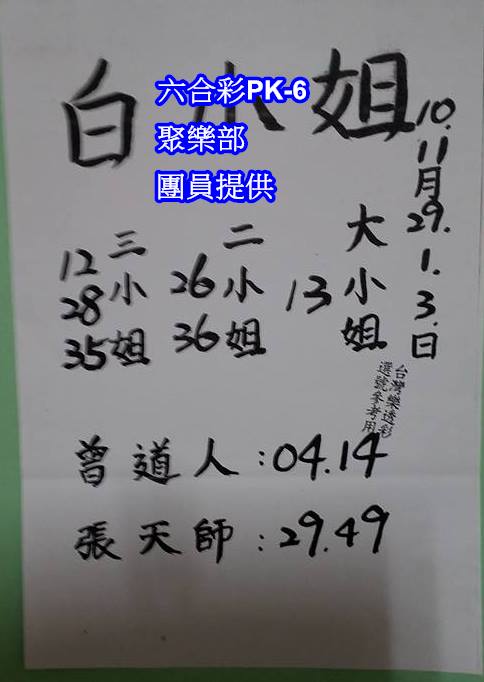 白小姐
六合彩PK-6
聚樂部
團員提供
10.11月29.1.3.日
大小姐
13
二小姐
26
36
三小姐
12
28
35
台灣樂透彩
選號參考用
曾道人：04.14
張天師：29.49